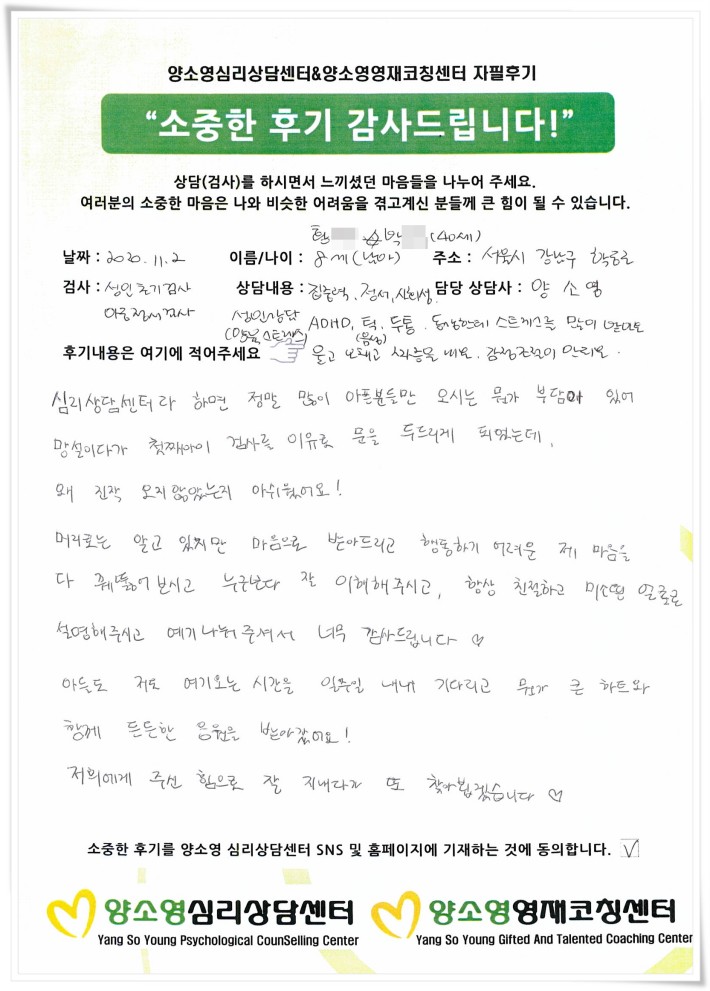 양소영심리상담센터&양소영영재코칭센터 자필후기
“소중한 후기 감사드립니다!”
상담(검사)를 하시면서 느끼셨던 마음들을 나누어 주세요.
여러분의 소중한 마음은 나와 비슷한 어려움을 겪고계신 분들께 큰 힘이 될 수 있습니다.
박 (40세)
날짜 : 2020. 11. 2 이름/나이 : 8세 (남아) 주소 : 서울시 강남구 학동로
검사 : 성인초기검사 상담내용 : 집중력, 정서, 사회성 담당 상담사 : 양 소 영
아동정서검사 성인상담 ADHD, 틱, 두통, 동생한테 스트레스를 많이 받아요
(양육 스트레스) (음성)
후기내용은 여기에 적어주세요 울고 떼쓰고 짜증을 내요. 감정조절이 안되요.
심리상담센터라 하면 정말 많이 아픈분들만 오시는 뭔가 부담이 있어
망설이다가 첫째아이 검사를 이유로 문을 두드리게 되었는데,
왜 진작 오지않았는지 아쉬웠어요!
머리로는 알고 있지만 마음으로 받아드리고 행동하기 어려운 제 마음을
다 꿰뚫어 보시고 누구보다 잘 이해해주시고, 항상 친절하고 미소띤 얼굴로
설명해주시고 얘기나눠주셔서 너무 감사드립니다 ♡
아들도 저도 여기오는 시간을 일주일 내내 기다리고 뭔가 큰 하트와
함께 든든한 응원을 받아갔어요!
저희에게 주신 힘으로 잘 지내다가 또 찾아뵙겠습니다 ♡
소중한 후기를 양소영 심리상담센터 SNS 및 홈페이지에 기재하는 것에 동의합니다. ☑
양소영심리상담센터 양소영영재코칭센터
Yang So Young Psychological CounSelling Center Yang So Young Gifted And Talented Coaching Center